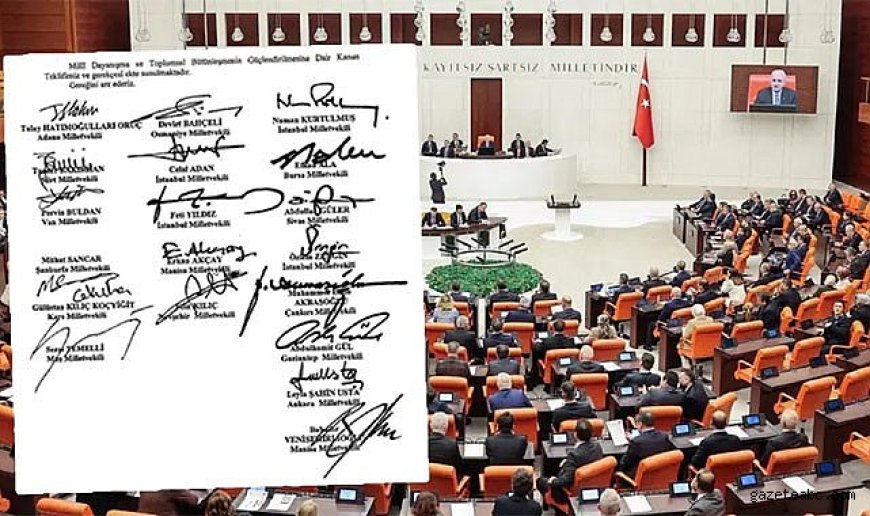 Millî Dayanışma ve Toplumsal Bütünleşmenin Güçlendirilmesine Dair Kanun
Teklifimiz ve gerekçesi ekte sunulmaktadır.
Gereğini arz ederiz.
Tulay HATIMOĞULLARI ORUÇ
Adana Milletvekili
Devlet BAHÇELİ
Osmaniye Milletvekili
Numan KURTULMUŞ
İstanbul Milletvekili
Milletvekili
Celal ADAN
İstanbul Milletvekili
ALA
Bursa Milletvekili
Pervin BULDAN
Van Milletvekili
Feti YILDIZ
İstanbul Milletvekili
Abdullah GÜLER
Sivas Milletvekili
Mithat SANCAR
Şanlıurfa Milletvekili
Erkan AKÇAY
Manisa Milletvekili
İstanbul Milletvekili
Gülüstan KILIÇ KOÇYİĞİT
Kars Milletvekili
KILIÇ
Nevşehir Milletvekili
Muhammet
AKBAŞOĞLU
Çankırı Milletvekili
Sezai TEMELLİ
Muş Milletvekili
Abdulhamit GÜL
Gaziantep Milletvekili
Leyla ŞAHİN USTA
Ankara Milletvekili
YENİŞEHİRLİOĞLU
Manisa Milletvekili
KAYITSIZ ŞARTSIZ MİLLETİNDİR
gazeteabc.com